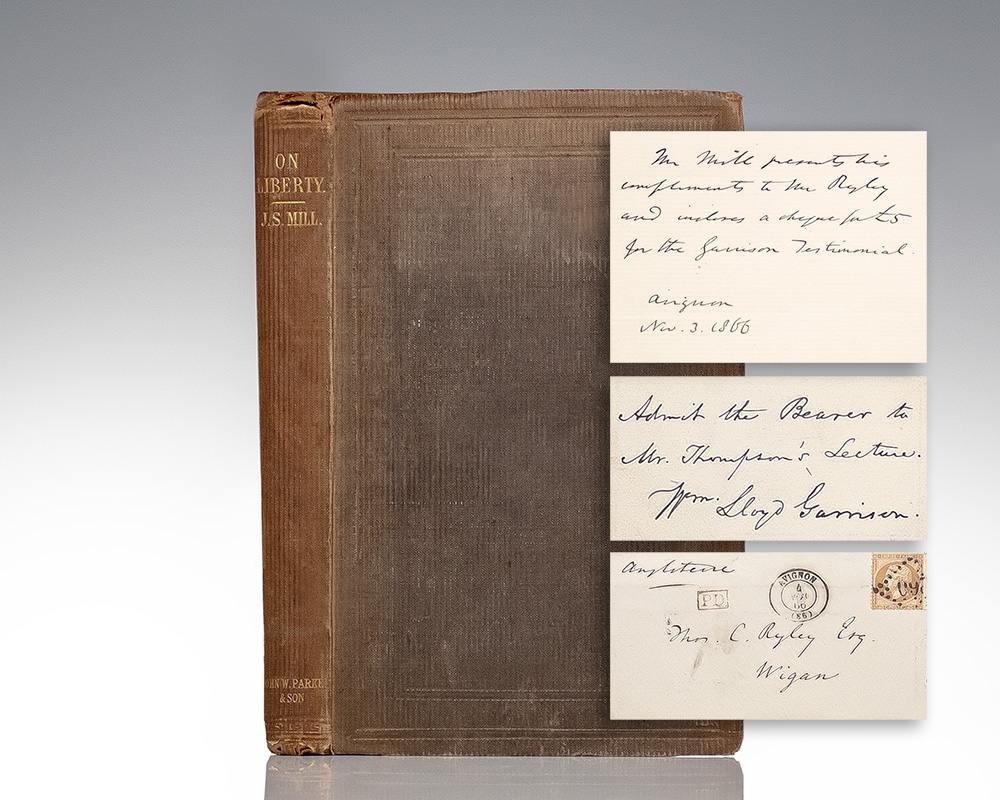 ON
LIBERTY.
J. S. MILL.
OHN W. PARKE
& SON
Mr Mill presents his
compliments to Mr Ryley
and incloses a cheque for £5
for the Garrison Testimonial.
Avignon
Nov. 3. 1866
Admit the Bearer to
Mr. Thompson's Lecture.
Wm. Lloyd Garrison.
Angleterre
PD
AVIGNON
4
66
(86)
Thos. C. Ryley Esq.
Wigan